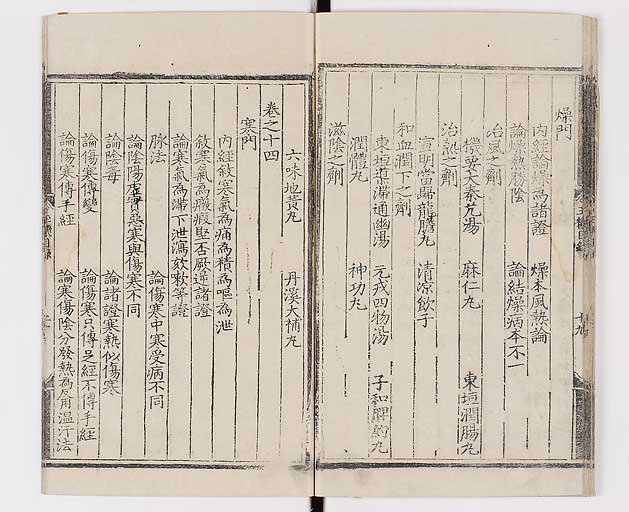 燥門
內經論燥為諸證 燥本風熱論
論燥熱勝陰 論結燥病本不一
治風之劑
機要大秦艽湯 麻仁丸 東垣潤腸丸
治熱之劑
宣明當歸龍膽丸 清涼飲子
和血潤下之劑
東垣導滯通幽湯 元戎四物湯 子和脾約丸
潤體丸 神功丸
滋陰之劑
六味地黃丸 丹溪大補丸
卷之十四
寒門
內經敘寒氣為痛為積為嘔為泄
敘寒氣為厥瘕堅否厥逆諸證
論寒氣為滯下泄瀉欬嗽等證
脉法 論傷寒中寒受病不同
論陰陽虛實惡寒與傷寒不同
論陰毒 論諸證寒熱似傷寒
論傷寒傳變 論傷寒只傳足經不傳手經
論傷寒傳手經 論寒傷陰分發熱為用溫汗法